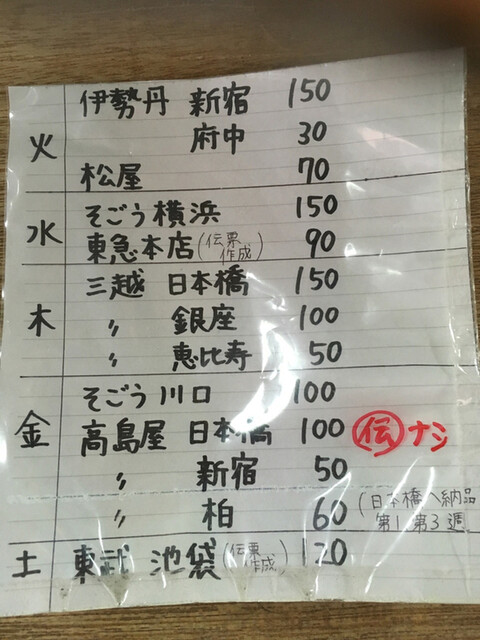 伊勢丹 新宿 150
火 府中 30
松屋 70
そごう横浜 150
水 東急本店(伝票作成) 90
三越 日本橋 150
木 〃 銀座 100
〃 恵比寿 50
そごう川口 100
金 高島屋 日本橋 100 伝ナシ
〃 新宿 50
〃 柏 60 (日本橋へ納品 第1 第3週
土 東武 池袋(伝票作成) 120